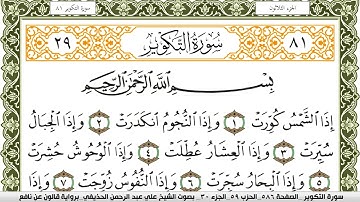 سورة التكوير ٨١ الجزء الثلاثون
٢٩ سُورَةُ التَّكْوِيرِ ٨١
بِسْمِ اللَّهِ الرَّحْمَٰنِ الرَّحِيمِ
إِذَا الشَّمْسُ كُوِّرَتْ ١ وَإِذَا النُّجُومُ انكَدَرَتْ ٢ وَإِذَا الْجِبَالُ
سُيِّرَتْ ٣ وَإِذَا الْعِشَارُ عُطِّلَتْ ٤ وَإِذَا الْوُحُوشُ حُشِرَتْ
٥ وَإِذَا الْبِحَارُ سُجِّرَتْ ٦ وَإِذَا النُّفُوسُ زُوِّجَتْ ٧ وَإِذَا
سورة التكوير . الصفحة ٥٨٦ . الحزب ٥٩ . الجزء ٣٠ . بصوت الشيخ علي عبد الرحمن الحذيفي . برواية قالون عن نافع